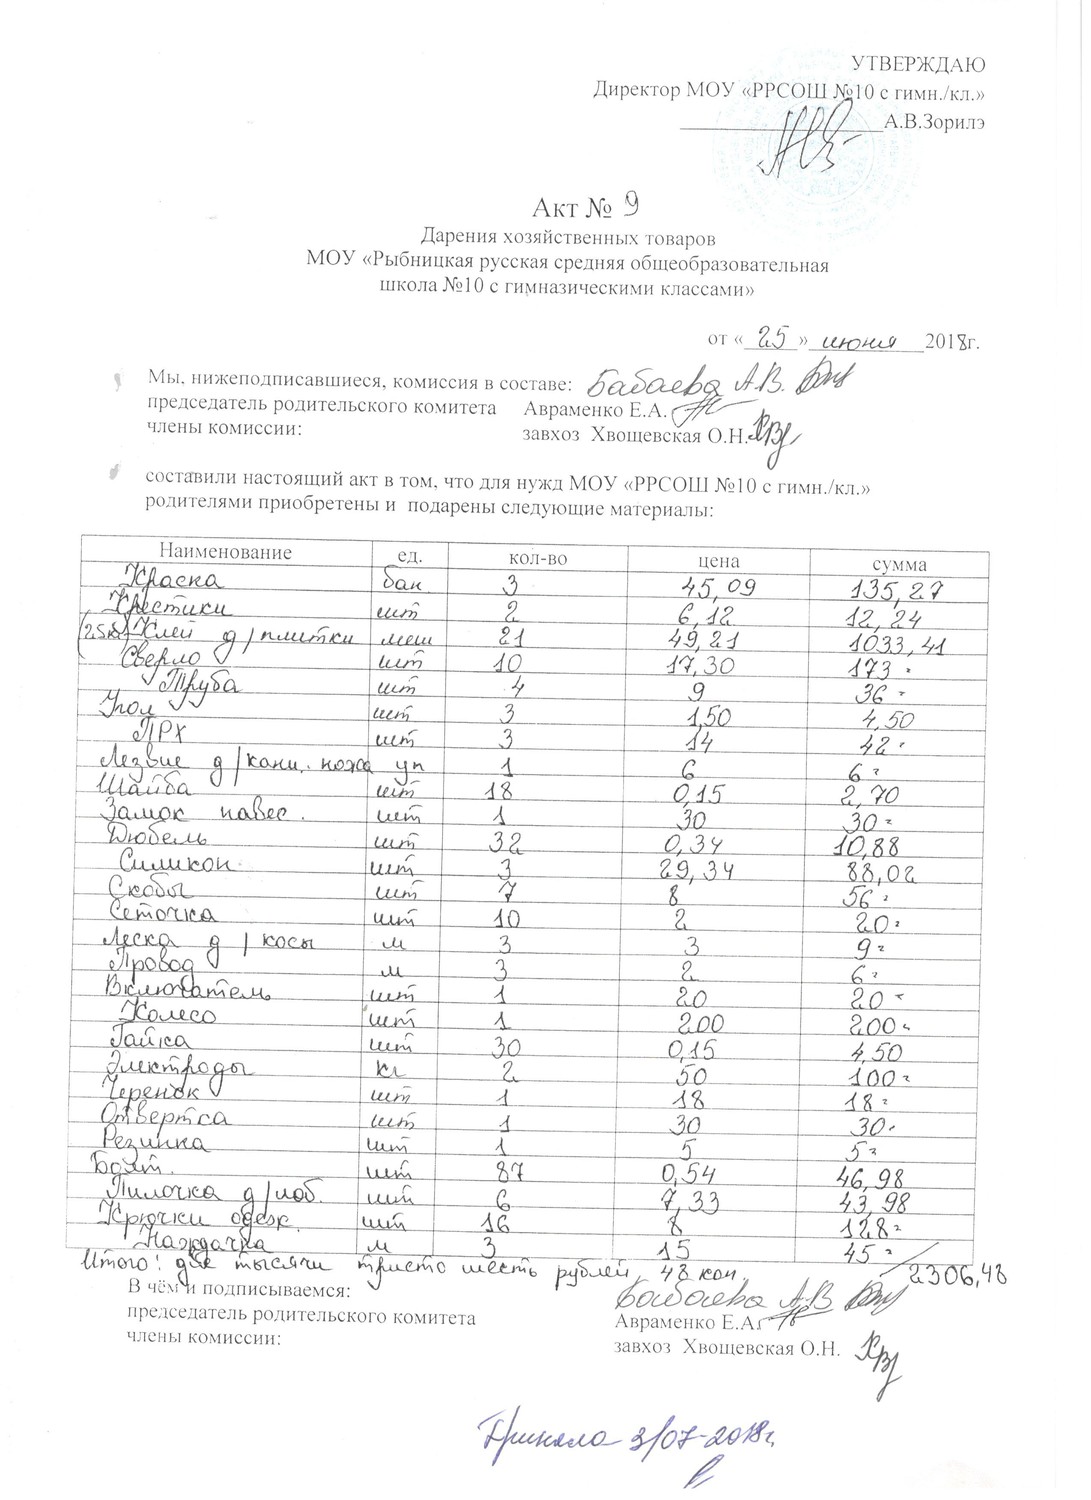 УТВЕРЖДАЮ
Директор МОУ «РРСОШ №10 с гимн./кл.»
А.В.Зорилэ
Акт № 9
Дарения хозяйственных товаров
МОУ «Рыбницкая русская средняя общеобразовательная
школа №10 с гимназическими классами»
от « 25 » июня 2018г.
Мы, нижеподписавшиеся, комиссия в составе: Бабаева А.В.
председатель родительского комитета Авраменко Е.А.
члены комиссии: завхоз Хвощевская О.Н.
составили настоящий акт в том, что для нужд МОУ «РРСОШ №10 с гимн./кл.»
родителями приобретены и подарены следующие материалы:
Наименование ед. кол-во цена сумма
Краска бан 3 45,09 135,27
Крестики шт 2 6,12 12,24
(25кг) Клей д/плитки меш 21 49,21 1033,41
Сверло шт 10 17,30 173-
Труба шт 4 9 36-
Угол шт 3 1,50 4,50
ПРХ шт 3 14 42-
Лезвие д/канц. ножа уп 1 6 6-
Шайба шт 18 0,15 2,70
Замок навес. шт 1 30 30-
Дюбель шт 32 0,34 10,88
Силикон шт 3 29,34 88,02
Скобы шт 7 8 56-
Сеточка шт 10 2 20-
Леска д/косы м 3 3 9-
Провод м 3 2 6-
Включатель шт 1 20 20-
Колесо шт 1 200 200-
Гайка шт 30 0,15 4,50
Электроды кг 2 50 100-
Черенок шт 1 18 18-
Отвертка шт 1 30 30-
Резинка шт 1 5 5-
Болт. шт 87 0,54 46,98
Пилочка д/лоб. шт 6 7,33 43,98
Крючки одеж. шт 16 8 128-
Наждачка м 3 15 45-
Итого: две тысячи триста шесть рублей, 48 коп. 2306,48
В чём и подписываемся: Бабаева А.В
председатель родительского комитета Авраменко Е.А.
члены комиссии: завхоз Хвощевская О.Н.
Приняла 3/07-2018г.